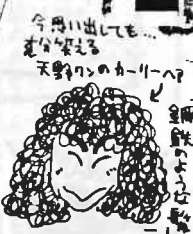 今思い出しても…
天野クンのカーリーヘア
鋼鉄のような髪